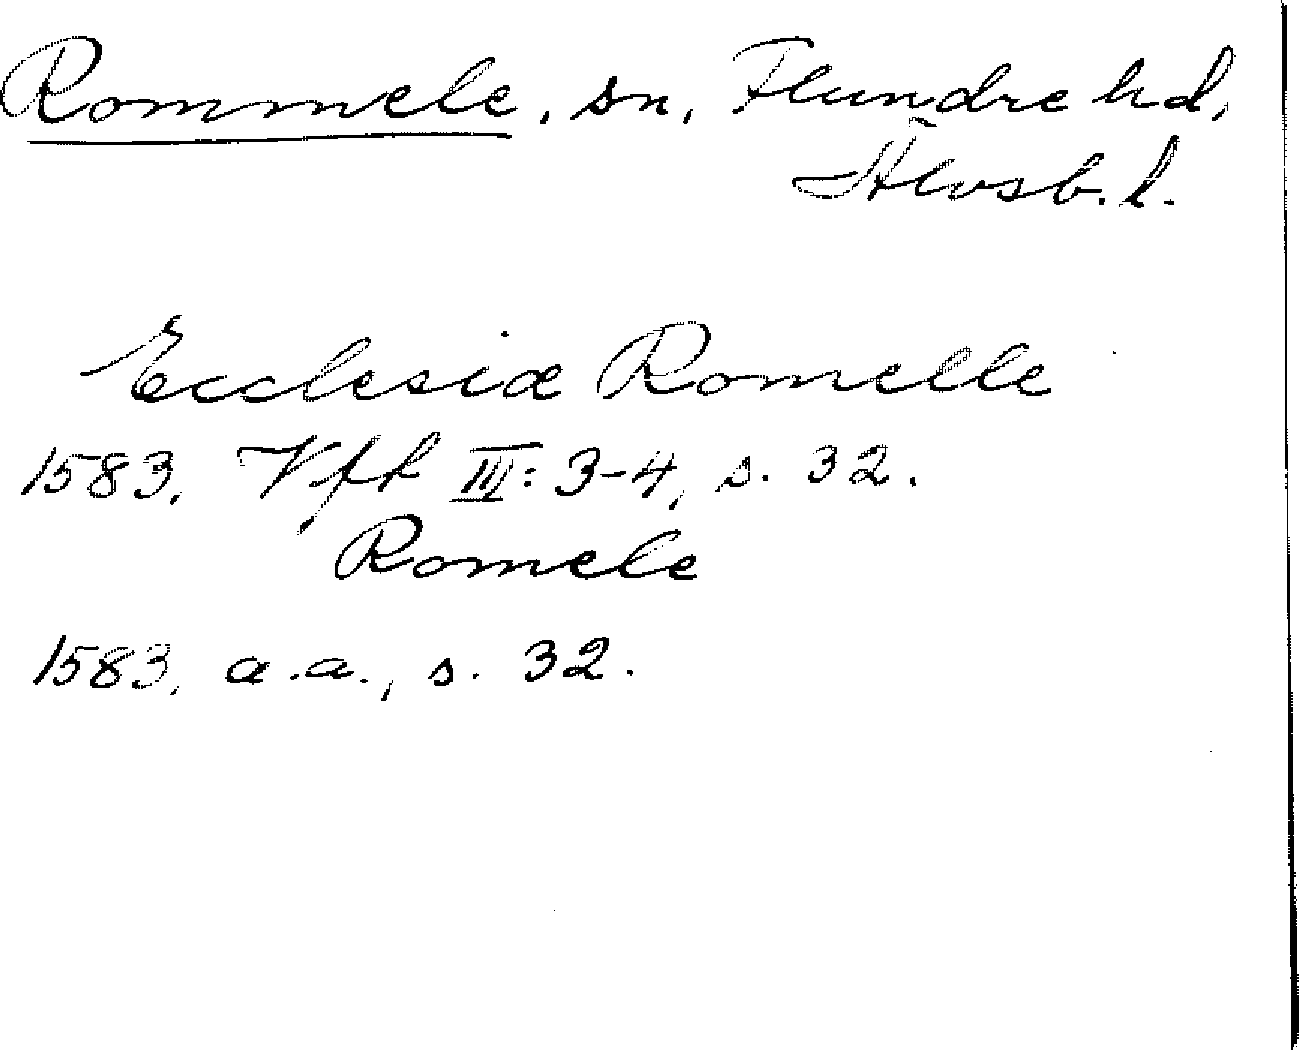 Rommele, sn, Flundre hd,
Älvsb. l.
Ecclesiæ Romelle
1583. Vfk III: 3-4, s. 32.
Romele
1583, a.a., s. 32.